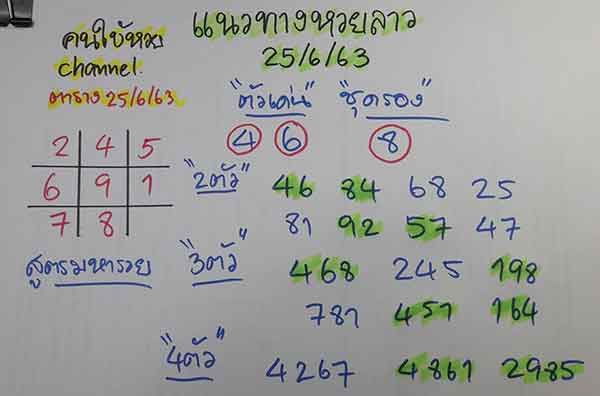 แนวทางหวยลาว
25/6/63
คนใบ้หวย
channel.
ตาราง 25/6/63
2 4 5
6 9 1
7 8
สูตรมหารวย
"ตัวเด่น" "ชุดรอง"
4 6 8
"2ตัว" 46 84 68 25
81 92 57 47
"3ตัว" 468 245 198
781 451 164
"4ตัว" 4267 4861 2985